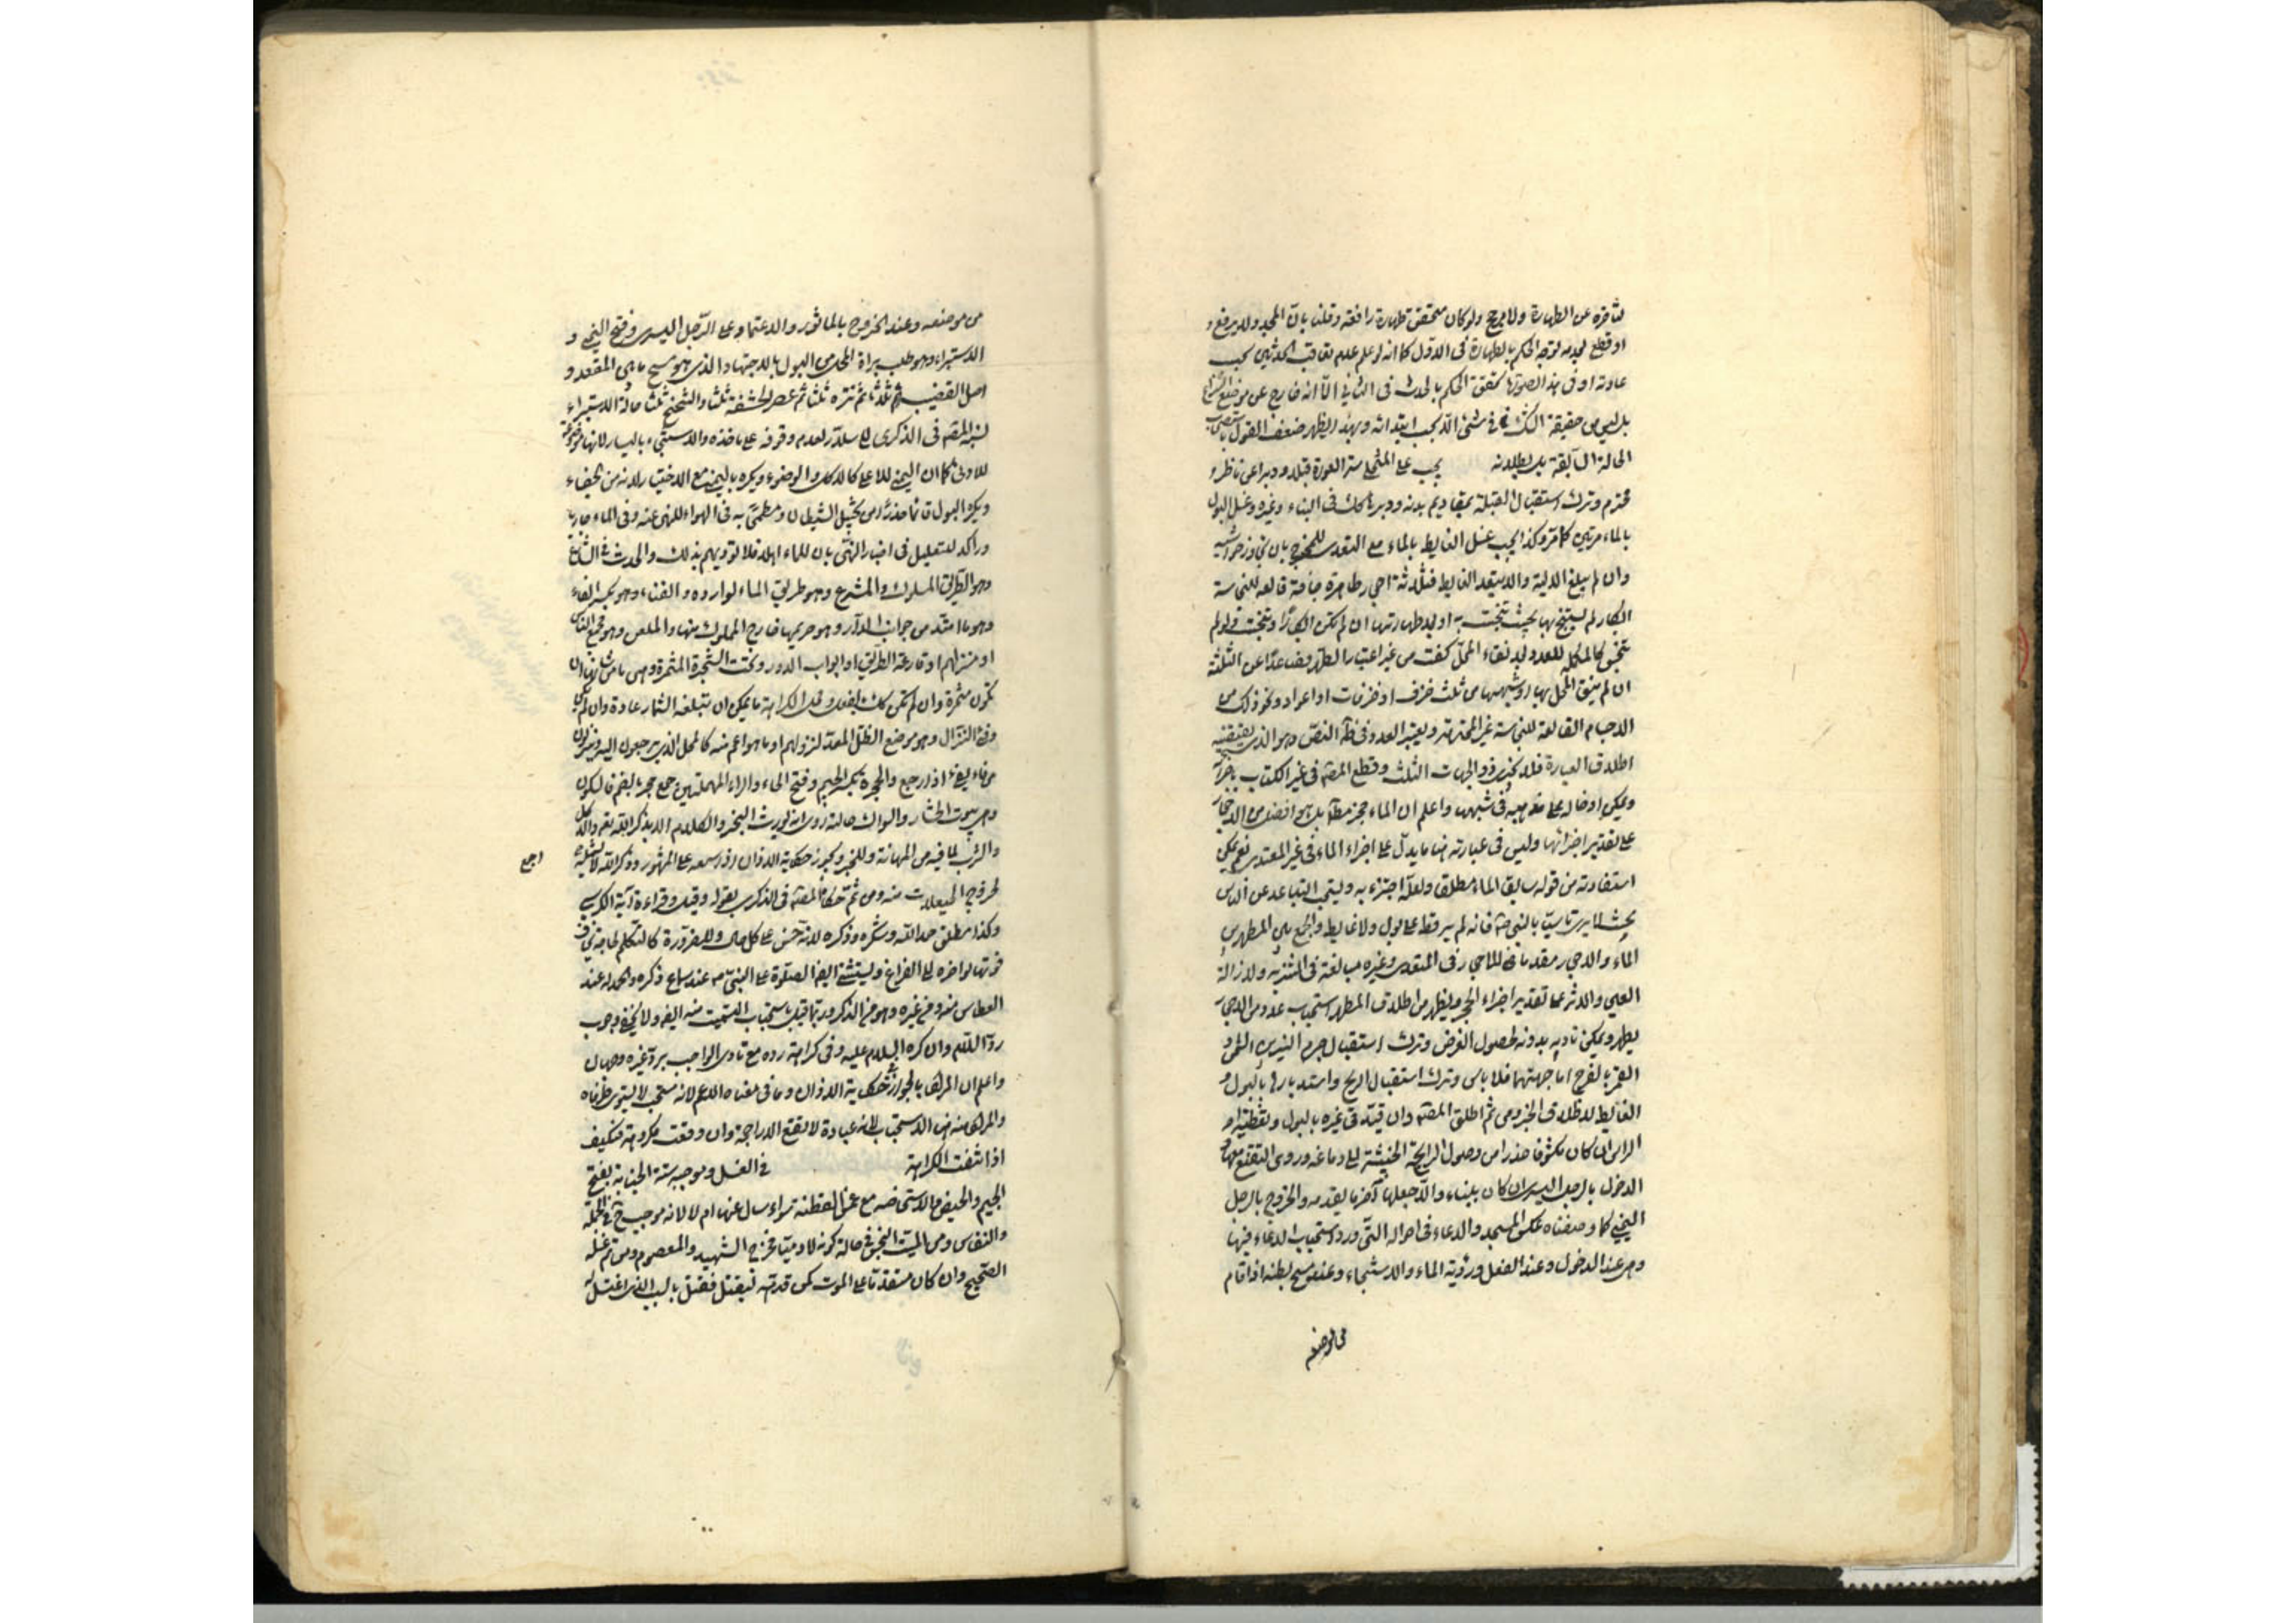 لتأخره عن الطهارة ولا مرجح ولو كان المتحقق طهارة رافعة وقلنا بان المجدد لا يرفع و
او قطع بعدمه توجه الحكم بالطهارة في الاول كما انه لو علم عدم تعاقب الحدثين بحسب
عادته او في هذه الصورة تحقق الحكم بالحدث في الثاني الا انه خارج عن موضع النزاع
بل ليس من حقيقة الشك في شيء الا بحسب ابتدائه وبهذا يظهر ضعف القول باستصحاب
الحالة السابقة بل بطلانه يجب على المتخلي ستر العورة قبلا ودبرا عن ناظر
محترم وترك استقبال القبلة بمقاديم بدنه ودبرها كك في البناء وغيره وغسل البول
بالماء مرتين كما مر وكذا يجب غسل الغايط بالماء مع التعدي للمخرج بان تجاوز حواشيه
وان لم يبلغ الالية والا يتعد الغايط فثلاثة احجار طاهرة جافة قالعة للنجاسة
ابكار لم يستنج بها بحيث تنجست به او بعد طهارتها ان لم تكن ابكارا وتنجست ولو لم
تنجس كالمكملة للعدد بعد نقاء المحل كفت من غير اعتبار الطهر فصاعدا عن الثلثة
ان لم ينق المحل بها او شبهها من ثلث خزف او خرقات او اعواد ونحو ذلك من
الاجسام القالعة للنجاسة غير المحترمة ويعتبر العدد في ظاهر النص وهو الذي يقتضيه
اطلاق العبارة فلا يجزي ذو الجهات الثلث وقطع المصنف في غير الكتاب باجزائه
ويمكن ادخاله على مذهبه في شبهها واعلم ان الماء مجز مطلقا بل هو افضل من الاحجار
على تقدير اجزائها وليس في عبارته هنا ما يدل على اجزاء الماء في غير المتعدي نعم يمكن
استفادته من قوله سابقا الماء مطلقا ولعله اجتزء به ويستحب التباعد عن الناس
بحيث لا يرى تاسيا بالنبي صلى الله عليه وآله فانه لم ير قط على بول ولا غايط والجمع بين المطهرين
الماء والاحجار مقدما للاحجار في المتعدي وغيره مبالغة في التنزيه ولازالة
العين والاثر على تقدير اجزاء الحجر ويظهر من اطلاق المطهر استحباب عدد من الاحجار
يطهر ويمكن تاديه بدونه لحصول الغرض وترك استقبال جرم النيرين الشمس و
القمر بالفرج اما جهتهما فلا باس وترك استقبال الريح واستدبارها بالبول و
الغايط لاطلاق الخبر ومن ثم اطلق المصنف وان قيد في غيره بالبول وتغطية
الراس ان كان مكشوفا حذرا من وصول الرايحة الخبيثة الى دماغه وروى التقنع معها
الدخول بالرجل اليسرى ان كان ببناء والا جعلها آخر ما يقدمه والخروج بالرجل
اليمنى كما وصفناه عكس المسجد والدعاء في احواله التي ورد استحباب الدعاء فيها
وهي عند الدخول وعند الفعل ورؤية الماء والاستنجاء وعند مسح بطنه اذا قام
من موضعه
من موضعه وعند الخروج بالماثور والاعتماد على الرجل اليسرى وفتح اليمنى و
الاستبراء وهو طلب براءة المحل من البول بالاجتهاد الذي هو مسح ما بين المقعد و
اصل القضيب ثلثا ثم نتره ثلثا ثم عصر الحشفة ثلثا والتنحنح ثلثا حالة الاستبراء
نسبه المصنف في الذكرى الى سلار لعدم وقوفه على ماخذه والاستنجاء باليسار لانها موضوعة
للادنى كما ان اليمنى للاعلى كالاكل والوضوء ويكره باليمنى مع الاختيار لانه من الجفاء
ويكره البول قائما حذرا من تخبيل الشيطان ومطمحا به في الهواء للنهي عنه وفي الماء جاريا
وراكدا للتعليل في اخبار النهي بان للماء اهلا فلا تؤذيهم بذلك والحدث في الشارع
وهو الطريق المسلوك والمشرع وهو طريق الماء للواردة والفناء وهو بكسر الفاء
وهو ما امتد من جوانب الدار وهو حريمها خارج المملوك منها والملعن وهو مجمع الناس
او منزلهم او قارعة الطريق او ابواب الدور وتحت الشجرة المثمرة وهي ما من شانها ان
تكون مثمرة وان لم تكن كك بالفعل ومحل الكراهة ما يمكن ان تبلغه الثمار عادة وان لم يكن
وفئ النزال وهو موضع الظل المعد لنزولهم او ما هو اعم منه كالمحل الذي يرجعون اليه وينزلون
من فاء يفئ اذا رجع والجحرة بكسر الجيم وفتح الحاء والراء المهملتين جمع جحر بالضم فالسكون
وهي بيوت الحشار والسواك حالته روي انه يورث البخر والكلام الا بذكر الله تعالى والاكل
والشرب لما فيه من المهانة وللخبر ويجوز حكاية الاذان اذا سمعه على المشهور وذكر الله لا يشمله اجمع
لخروج الحيعلات منه ومن ثم حكاه المصنف في الذكرى بقوله وقيل وقراءة آية الكرسي
وكذا مطلق حمد الله وشكره وذكره لانه حسن على كل حال وللضرورة كالتكلم لحاجة يخاف
فوتها لو اخره الى الفراغ ويستثنى ايضا الصلوة على النبي صلى الله عليه وآله عند سماع ذكره والحمدلة عند
العطاس منه ومن غيره وهو من الذكر وربما قيل باستحباب التسميت منه ايضا ولا يخفى وجوب
رد السلام وان كره السلام عليه وفي كراهة رده مع تادي الواجب برد غيره وجهان
واعلم ان المراد بالجواز في حكاية الاذان وما في معناه الاعم لانه مستحب لا يستوي طرفاه
والمراد منه هنا الاستحباب لانه عبادة لا تقع الا راجحة وان وقعت مكروهة فكيف
اذا انتفت الكراهة في الغسل وموجبه ستة الجنابة بفتح
الجيم والحيض والاستحاضة مع غمس القطنة سواء سال عنها ام لا لانه موجب في الجملة
والنفاس ومس الميت النجس في حالة كونه آدميا فخرج الشهيد والمعصوم ومن تم غسله
الصحيح وان كان متقدما على الموت كمن قدمه ليقتل فقتل بالسبب الذي اغتسل له